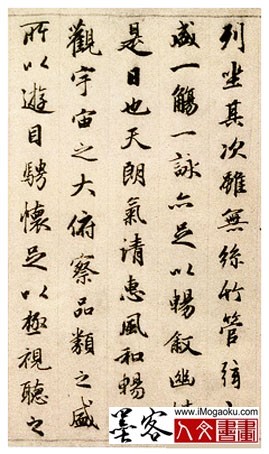 列坐其次雖無絲竹管弦之
盛一觴一詠亦足以暢敘幽情
是日也天朗氣清惠風和暢
觀宇宙之大俯察品類之盛
所以遊目騁懷足以極視聽之
www.iMogaoku.com
墨客 人文書畫